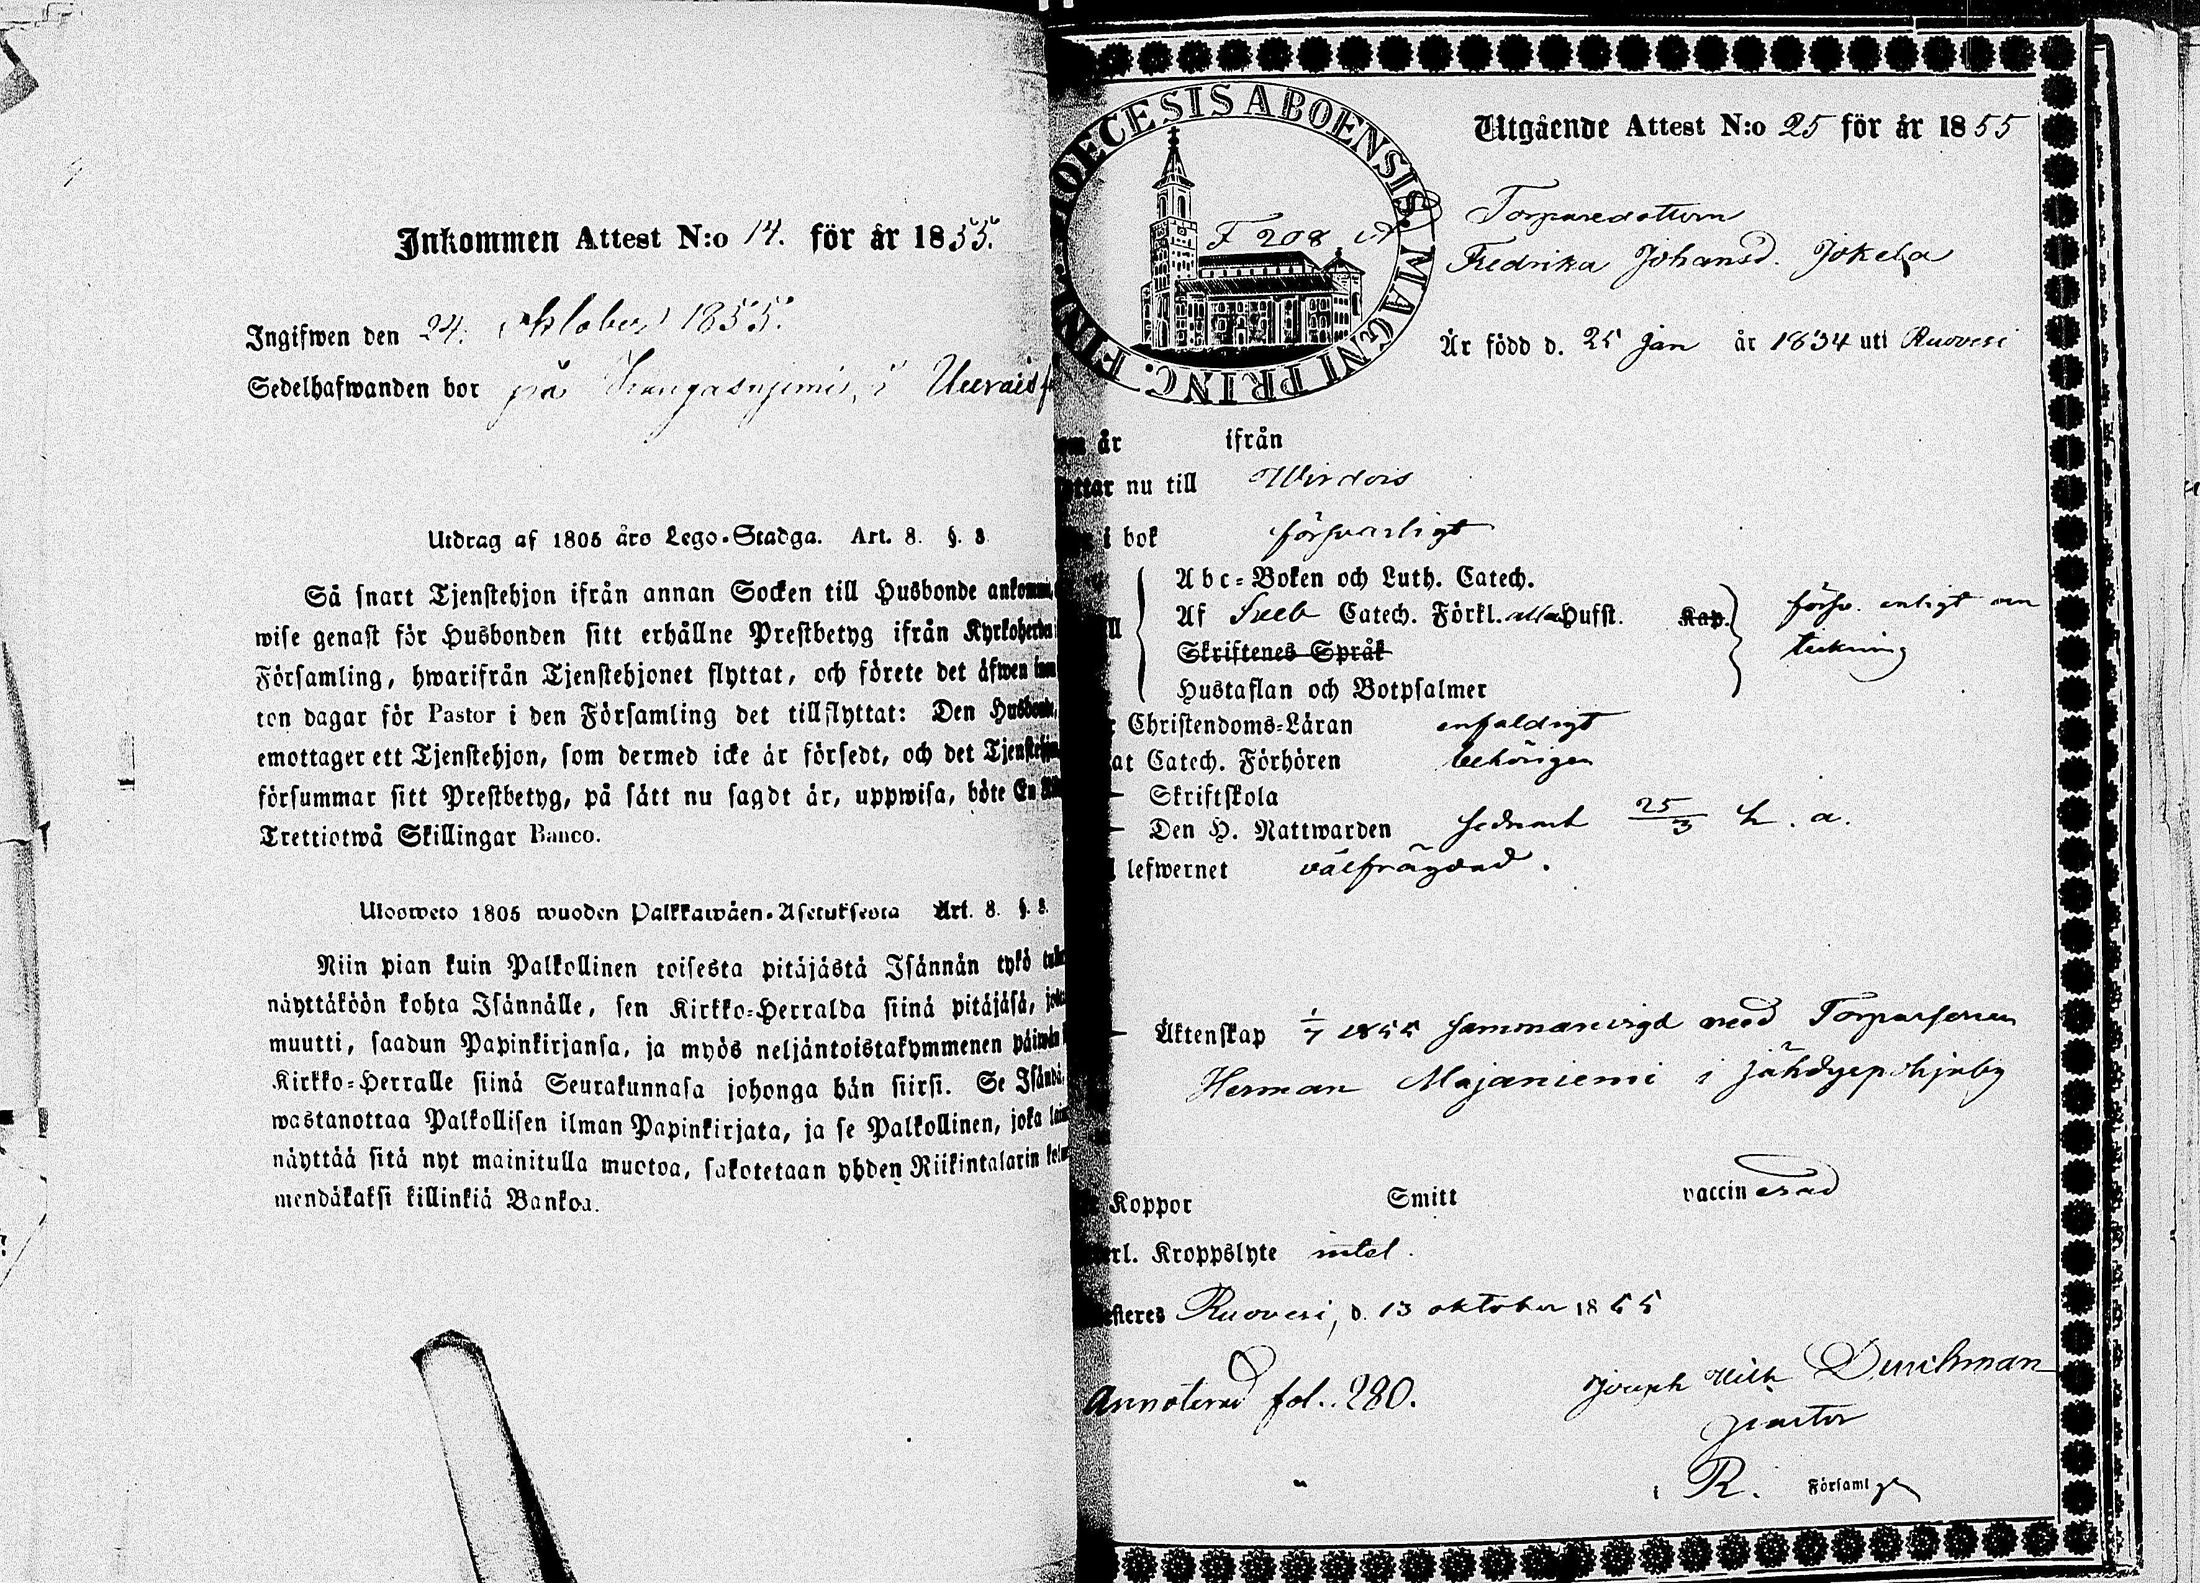 Inkommen Attest N:o 14. för år 1855.
Ingifwen den 24. oktober 1855.
Sedelhafwanden bor på Kangasniemis, i
Utdrag af 1805 års Lego-Stadga. Art. 8. §. 8
Så snart Tjenstehjon ifrån annan Socken till Husbonde
wise genast för Husbonden sitt erhållne Prestbetyg ifrån
Församling, hwarifrån Tjenstehjonet flyttat, och förete det äfwen
ton dagar för Pastor i den Församling det tillflyttat: Den
emottager ett Tjenstehjon, som dermed icke är försedt, och det
försummar sitt Prestbetyg, på sätt nu sagdt är, uppwisa, böte En
Trettiotwå Skillingar Banco.
Ulosweto 1805 wuoden Palkkawäen-Asetuksesta Art. 8. §. 8.
Niin pian kuin Palkollinen toisesta pitäjästä Isännän tykö
näyttäköön kohta Isännälle, sen Kirkko-Herralda siinä pitäjäsä,
muutti, saadun Papinkirjansa, ja myös neljäntoistakymmenen
Kirkko-Herralle siinä Seurakunnasa johonga hän siirsi. Se
wastanottaa Palkollisen ilman Papinkirjata, ja se Palkollinen, joka
näyttää sitä nyt mainitulla muotoa, sakotetaan yhden Riikintalarin
mendäkaksi killinkiä Bankoa.
DIOECESIS ABOENSIS. MAGNI PRINC. FINL.
F 208
Utgående Attest N:o 25 för år 1855
Torparedottern
Fredrika Johansd. Jokela
Är född d. 25 Jan år 1834 uti Ruovesi
år ifrån
nu till Wirdois
i bok försvarligt
Abc-Boken och Luth. Catech.
Af Sveb Catech. Förkl. alla Hufst. Kap. försv. enligt an
Skriftenes Språk teckning
Hustaflan och Botpsalmer
Christendoms-Läran enfaldigt
at Catech. Förhören behörigen
Skriftskola
Den H. Nattwarden sednast 25/3 h. a.
lefwernet välfrägdad.
Äktenskap 1/7 1855 sammanvigd med Torparsonen
Herman Majaniemi i
Koppor Smitt vaccinerad
Kroppslyte intet.
Ruovesi, d. 13 oktober 1855
Annoterad fol. 280. Joseph Wilh Durchman
pastor
i R. Församlg